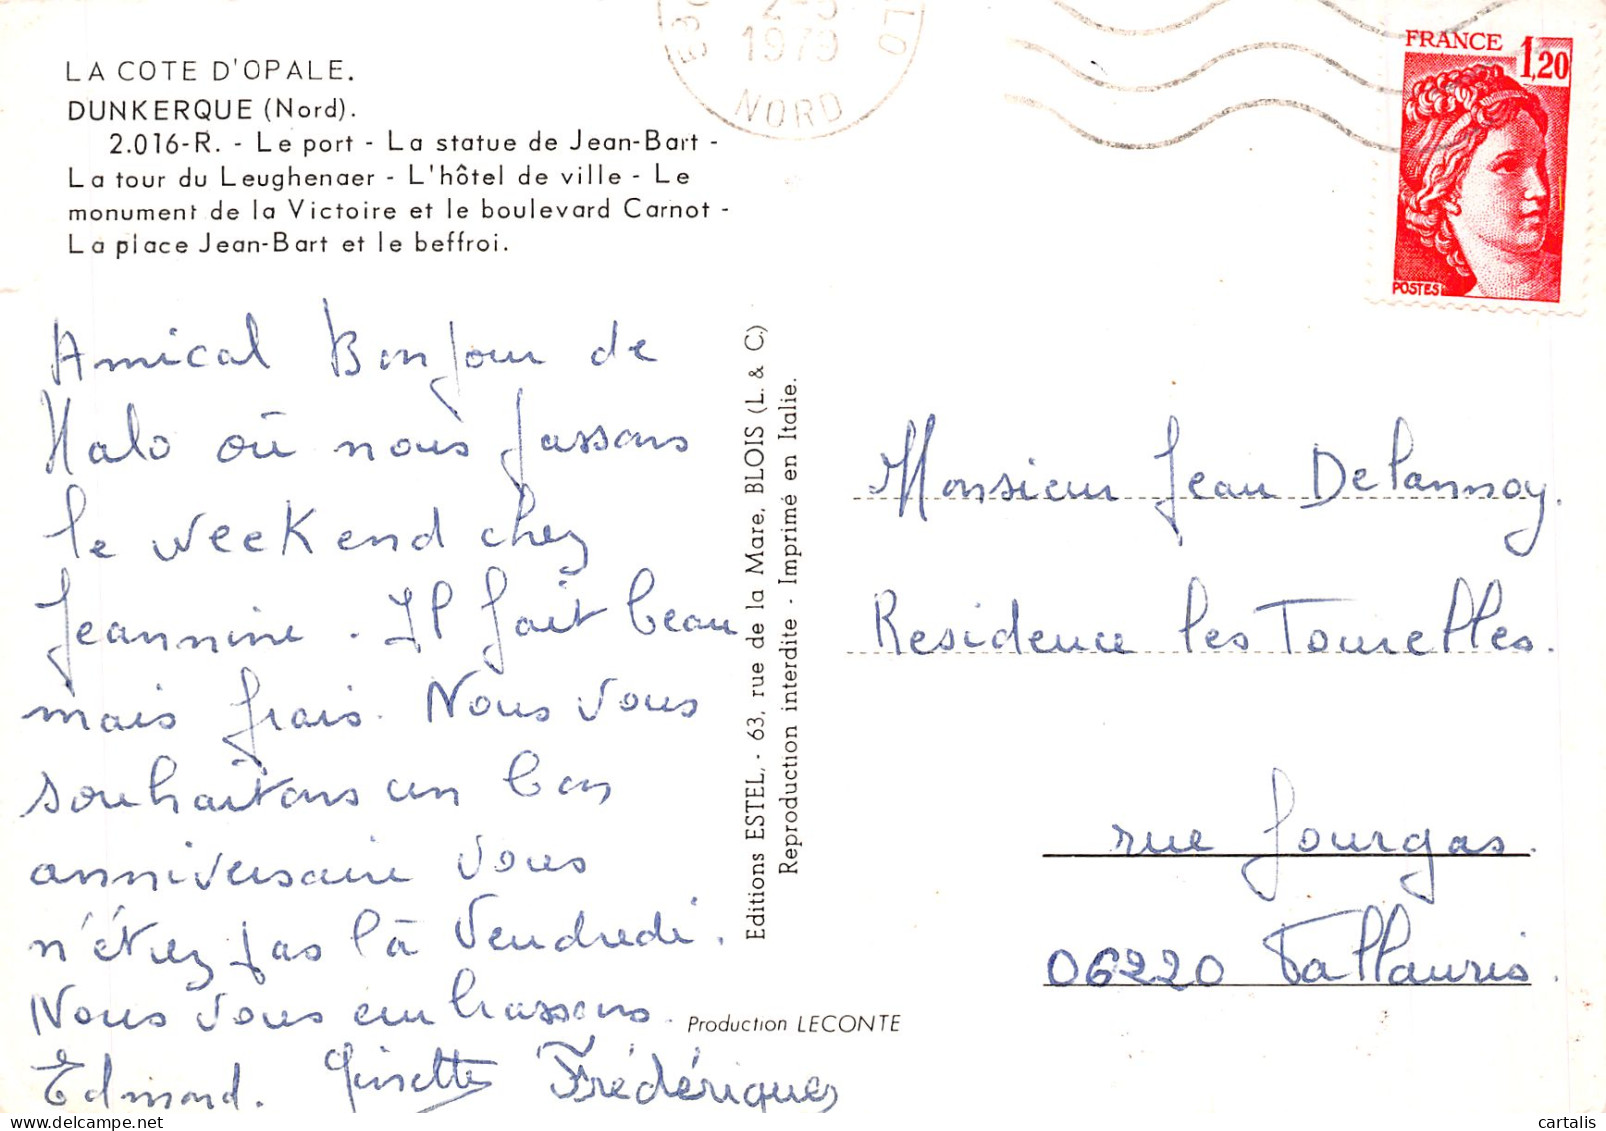 LA COTE D'OPALE.
DUNKERQUE (Nord).
2.016-R. - Le port - La statue de Jean-Bart -
La tour du Leughenaer - L'hôtel de ville - Le
monument de la Victoire et le boulevard Carnot -
La place Jean-Bart et le beffroi.
1979
NORD
FRANCE 1,20
POSTES
Amical Bonjour de
Malo où nous passons
le weekend chez
Jeannine. Il fait beau
mais frais. Nous vous
souhaitons un bon
anniversaire vous
n'étiez pas là Vendredi.
Nous vous embrassons.
Edmond. Ginette Frédérique
Editions ESTEL, - 63, rue de la Mare, BLOIS (L. & C.)
Reproduction interdite - Imprimé en Italie.
Production LECONTE
Monsieur Jean Delannoy.
Residence les Tourelles.
rue Fourgas.
06220 Vallauris.
cartalis